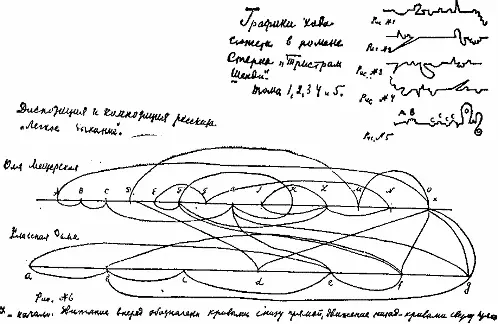 Графики хода
сюжета в романе
Стерна „Тристрам
Шенди“.
тома 1, 2, 3 4 и 5.
Рис №1
Рис №2
Рис. №3
Рис. №4
А В
с с с
Рис. №5
Диспозиция и композиция рассказа
„Легкое дыхание“.
Оля Мещерская
А В С
О
Классная Дама.
a b c d e f g
Рис. №6
начало. Движение вперед обозначены кривыми снизу прямой, движение назад - кривыми сверху